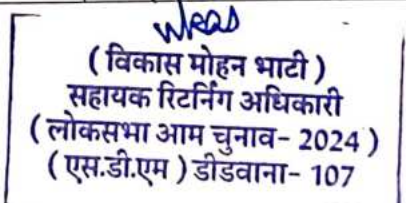 ( विकास मोहन भाटी )
सहायक रिटर्निंग अधिकारी
( लोकसभा आम चुनाव- 2024 )
( एस.डी.एम ) डीडवाना- 107